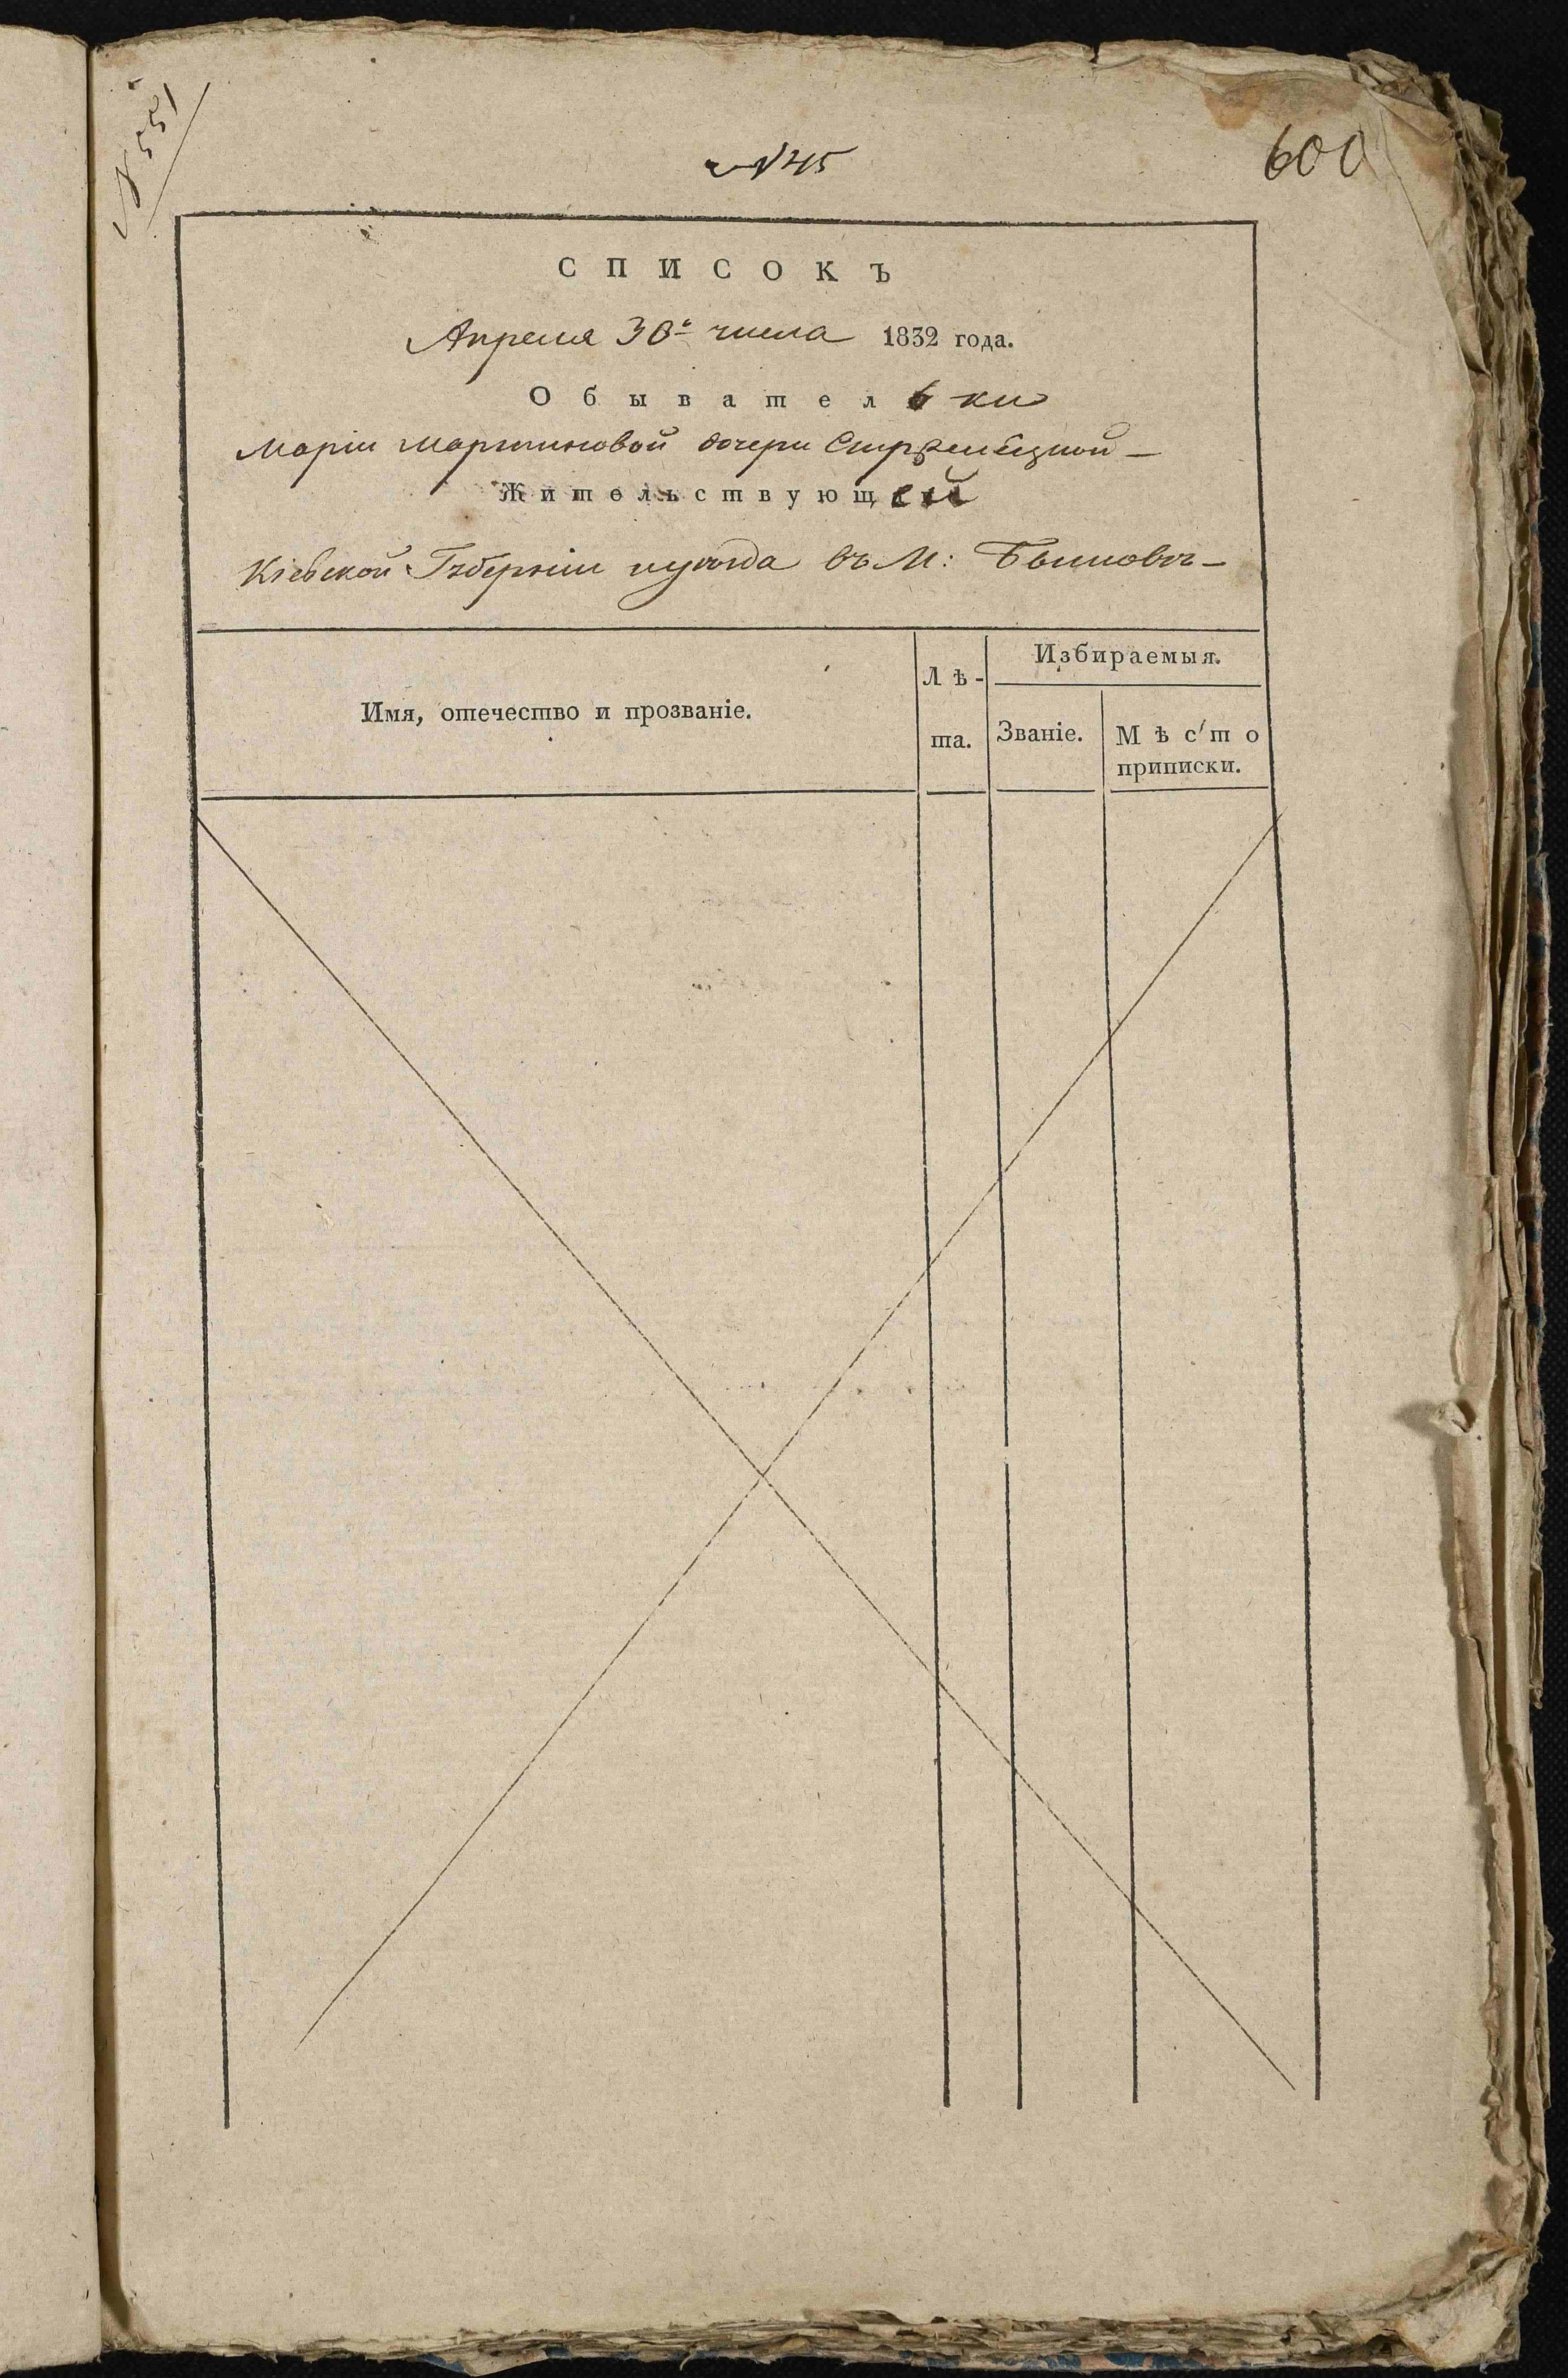 № 551
№ 45
600
СПИСОКЪ
Апреля 30го числа 1832 года.
Обывательки
Маріи Мартиновой дочери
Жительствующей
Кіевской Губерніи и уѣзда въ М:
Имя, отечество и прозваніе.
Лѣ-
та.
Избираемыя.
Званіе.
Мѣсто
приписки.